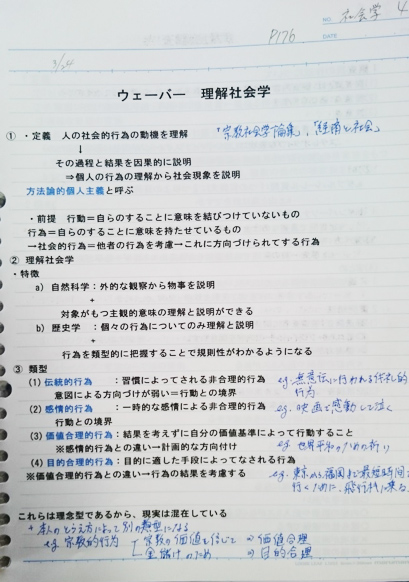 NO. 社会学 4
P176 DATE
3/24
ウェーバー 理解社会学
① ・定義 人の社会的行為の動機を理解 「宗教社会学論集」,「経済と社会」
↓
その過程と結果を因果的に説明
⇒個人の行為の理解から社会現象を説明
方法論的個人主義と呼ぶ
・前提 行動＝自らのすることに意味を結びつけていないもの
行為＝自らのすることに意味を持たせているもの
→社会的行為＝他者の行為を考慮→これに方向づけられてする行為
② 理解社会学
・特徴
a) 自然科学：外的な観察から物事を説明
+
対象がもつ主観的意味の理解と説明ができる
b) 歴史学 ：個々の行為についてのみ理解と説明
+
行為を類型的に把握することで規則性がわかるようになる
③ 類型
(1) 伝統的行為 ：習慣によってされる非合理的行為 eg. 無意識に行われる儀礼的
意図による方向づけが弱い＝行動との境界 行為
(2) 感情的行為 ：一時的な感情による非合理的行為 eg. 映画で感動して泣く
行動との境界
(3) 価値合理的行為：結果を考えずに自分の価値基準によって行動すること
※感情的行為との違い→計画的な方向付け eg. 世界平和のための祈り
(4) 目的合理的行為：目的に適した手段によってなされる行為 eg. 東京から福岡まで最短時間で
※価値合理的行為との違い→行為の結果を考慮する 行くために、飛行機に乗る
これらは理念型であるから、現実は混在している
+ 本人のとらえ方によって別の類型になる
eg 宗教的行為 宗教の価値を信じて ⇒ 価値合理
金儲けのため ⇒ 目的合理